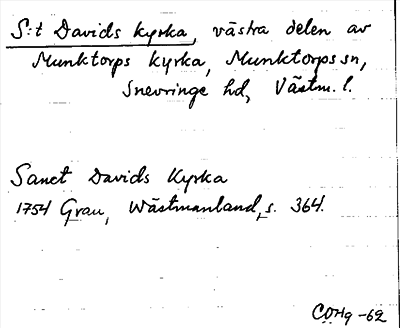 S:t Davids kyrka, västra delen av
Munktorps kyrka, Munktorps sn,
Snevringe hd, Västm. l.
Sanct Davids Kyrka
1754 Grau, Wästmanland, s. 364.
COHg -62